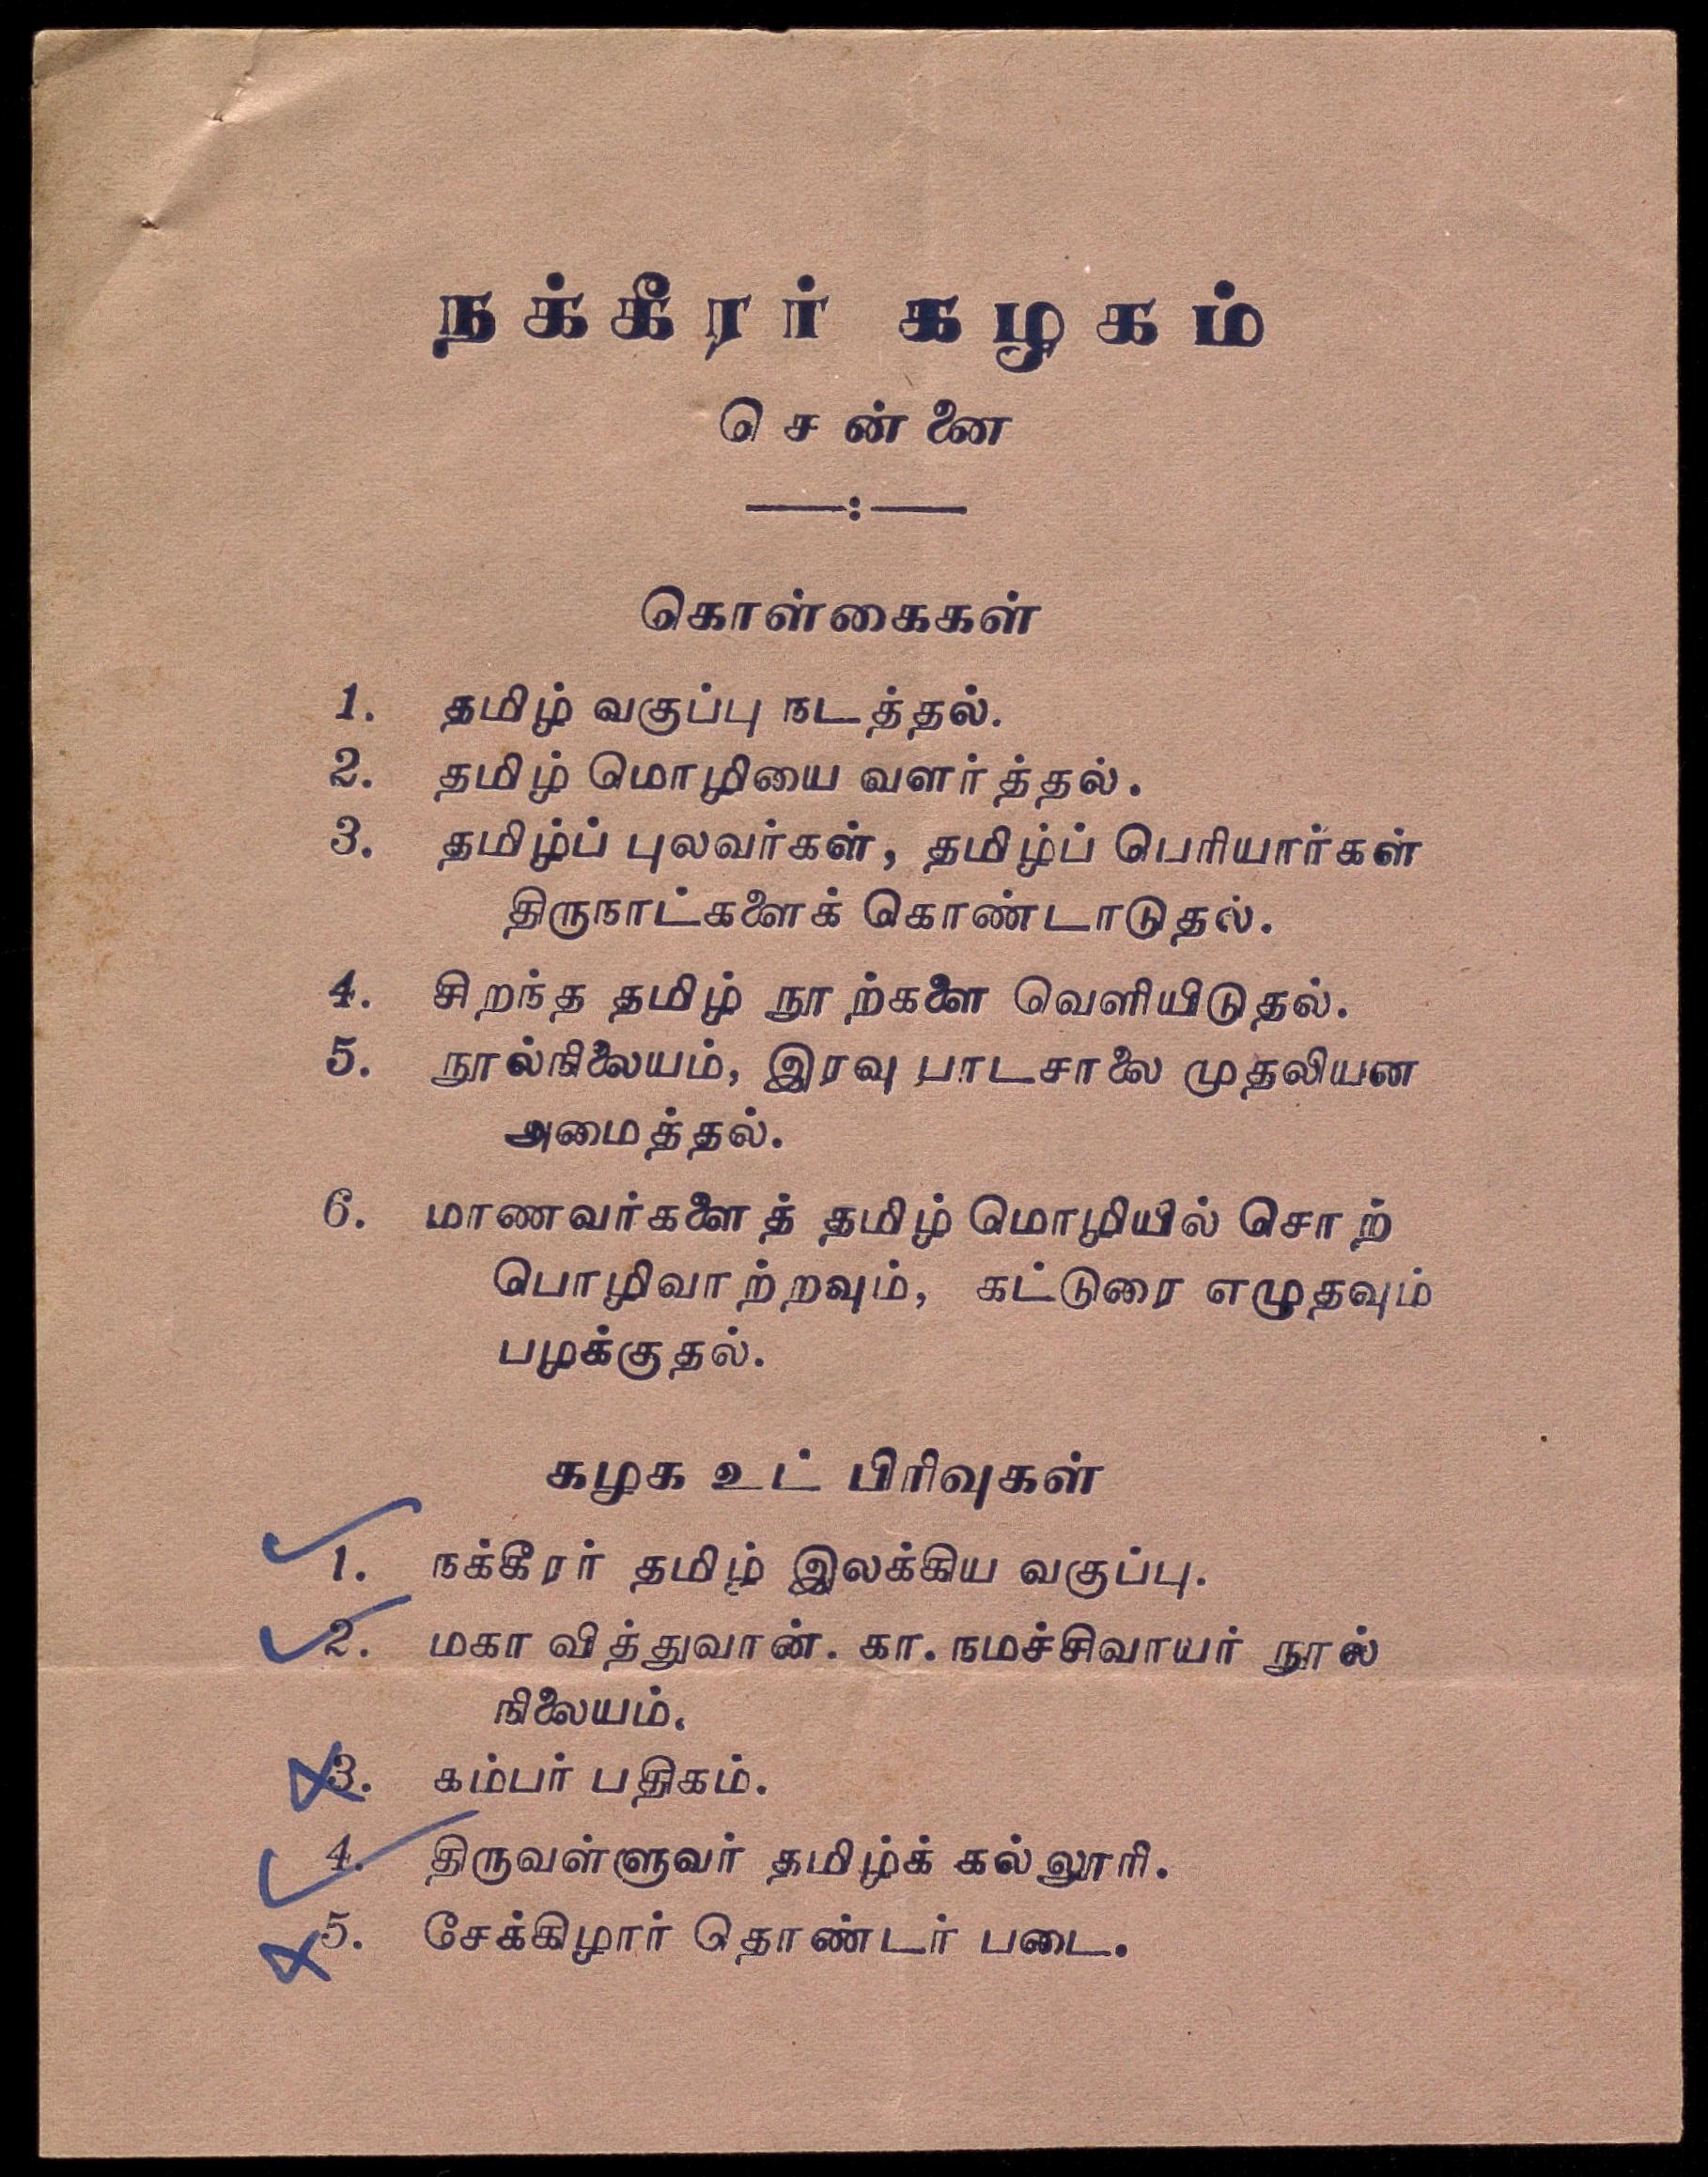 நக்கீரர் கழகம்
சென்னை
——:——
கொள்கைகள்
1. தமிழ் வகுப்பு நடத்தல்.
2. தமிழ் மொழியை வளர்த்தல்.
3. தமிழ்ப் புலவர்கள், தமிழ்ப் பெரியார்கள்
திருநாட்களைக் கொண்டாடுதல்.
4. சிறந்த தமிழ் நூற்களை வெளியிடுதல்.
5. நூல்நிலையம், இரவு பாடசாலை முதலியன
அமைத்தல்.
6. மாணவர்களைத் தமிழ் மொழியில் சொற்
பொழிவாற்றவும், கட்டுரை எழுதவும்
பழக்குதல்.
கழக உட் பிரிவுகள்
1. நக்கீரர் தமிழ் இலக்கிய வகுப்பு.
2. மகா வித்துவான். கா. நமச்சிவாயர் நூல்
நிலையம்.
3. கம்பர் பதிகம்.
4. திருவள்ளுவர் தமிழ்க் கல்லூரி.
5. சேக்கிழார் தொண்டர் படை.